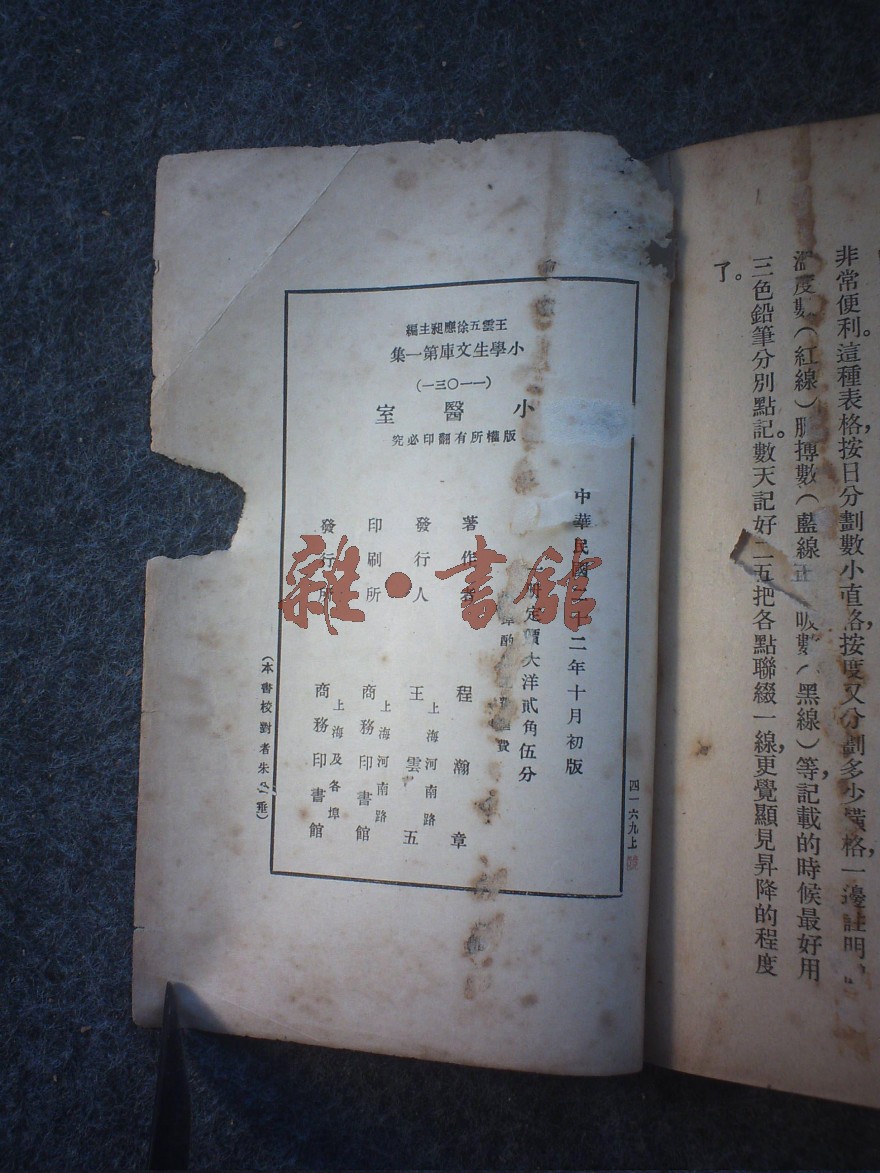 非常便利。這種表格，按日分劃數小直格，按度又分劃多少橫格，一邊註明
度數（紅線）脈搏數（藍線）吸數（黑線）等，記載的時候，最好用
三色鉛筆分別點記。數天記好，把各點聯綴一線，更覺顯見昇降的程度
了。
四一六九上
中華民國二十二年十月初版
王雲五徐應昶主編
小學生文庫第一集
（一一〇三一）
小醫室
版權所有翻印必究
冊定價大洋貳角伍分
費
著作者 程瀚章
發行人 王雲五
上海河南路
印刷所 商務印書館
上海河南路
發行所 商務印書館
上海及各埠
（本書校對者朱垂）
雜·書館